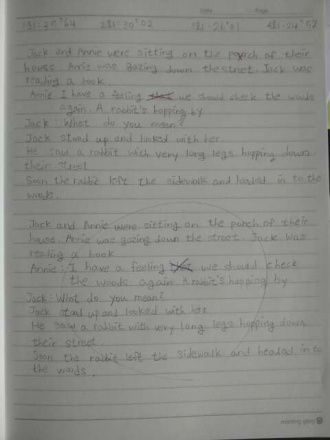 Date Page
Jack and Annie were sitting on the porch of their
house. Annie was gazing down the street. Jack was
reading a book
Annie I have a feeling we should check the woods
again. A rabbit's hopping by
Jack: What do you mean?
Jack stand up and looked with her
He saw a rabbit with very long legs hopping down
their street
Soon the rabbit left the sidewalk and headed in to the
woods.
Jack and Annie were sitting on the porch of their
house. Annie was gazing down the street. Jack was
reading a book
Annie: I have a feeling we should check
the woods again. A rabbit's hopping by
Jack: What do you mean?
Jack stand up and looked with her
He saw a rabbit with very long legs hopping down
their street
Soon the rabbit left the sidewalk and headed in to
the woods.